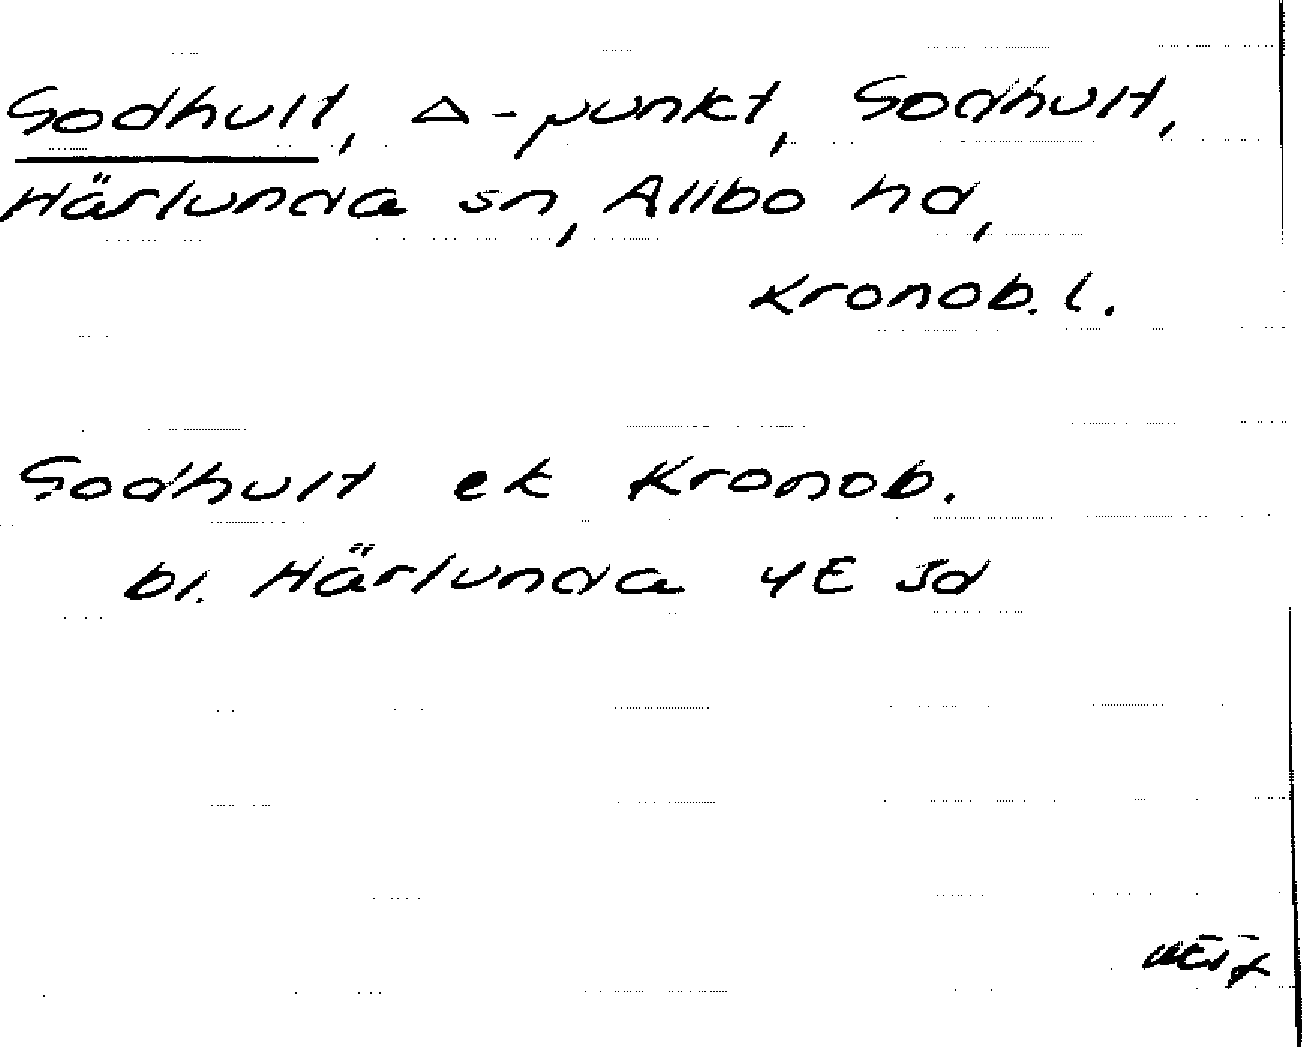 Sodhult, Δ-punkt, Sodhult,
Härlunda sn, Allbo hd,
Kronob. l.
Sodhult ek Kronob.
bl. Härlunda 4E Jd